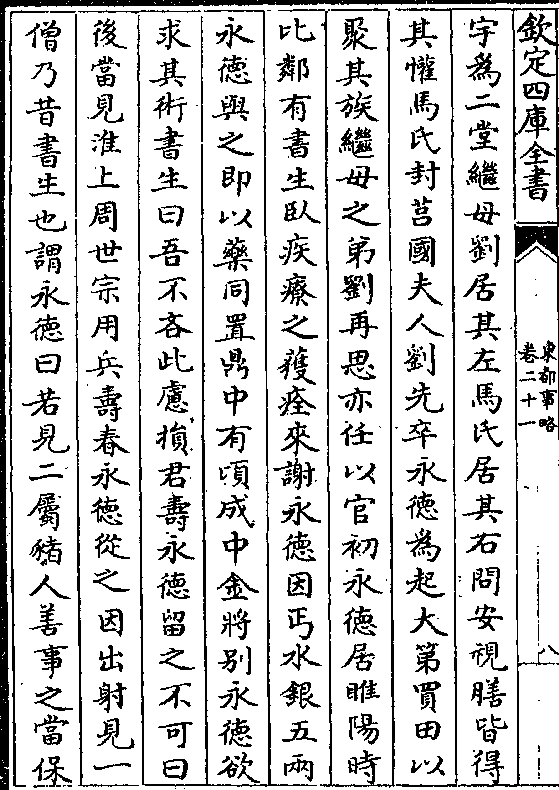 欽定四庫全書
東都事略
卷二十一
八
宇為二堂繼母劉居其左馬氏居其右問安視膳皆得
其懽馬氏封莒國夫人劉先卒永德為起大第買田以
聚其族繼母之弟劉再思亦任以官初永德居睢陽時
比鄰有書生臥疾療之獲痊來謝永德因丐水銀五兩
永德與之即以藥同置鼎中有頃成中金將別永德欲
求其術書生曰吾不吝此慮損君壽永德留之不可曰
後當見淮上周世宗用兵壽春永德從之因出射見一
僧乃昔書生也謂永德曰若見二屬豬人善事之當保